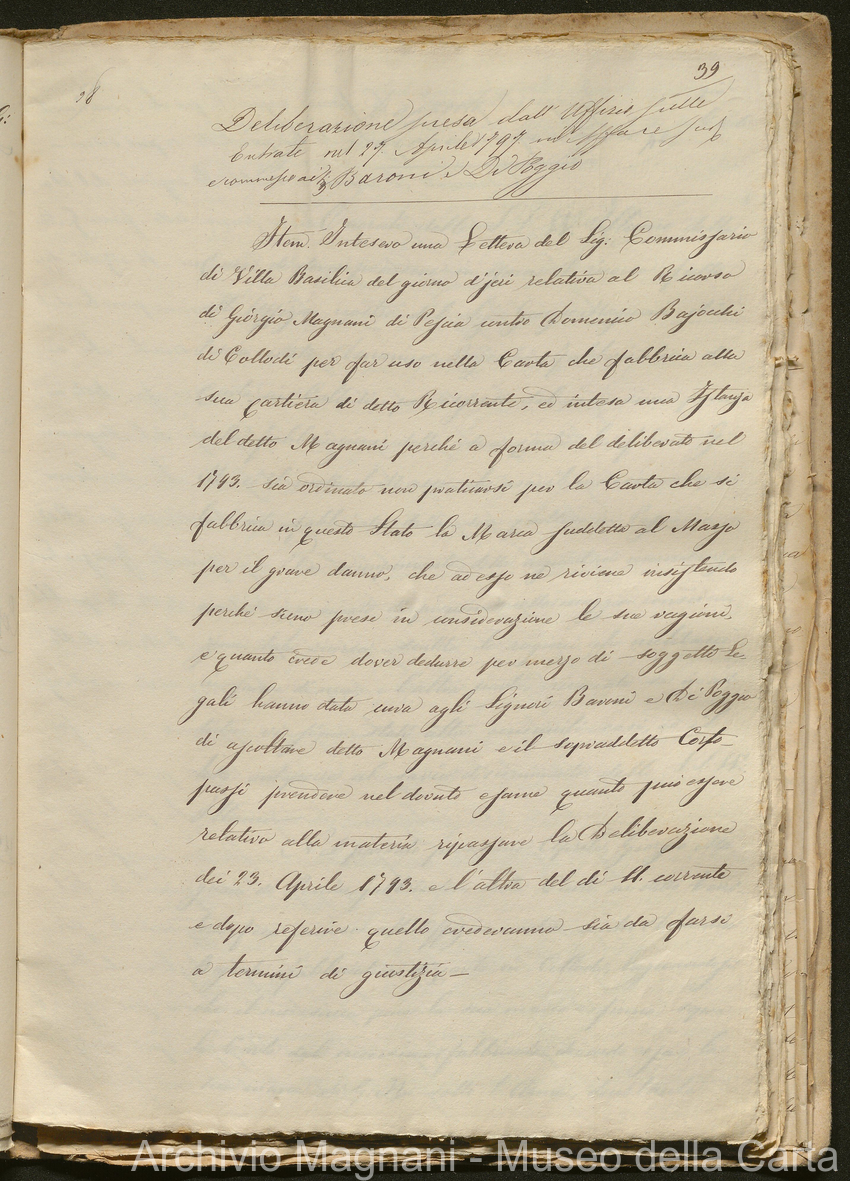 39
38
Deliberazione presa dall' Uffizio sulle
Entrate nel 27. Aprile 1797. nell' Affare
e commesso ai Baroni e Di Poggio
Item. Inteseno una Lettera del Sig: Commissario
di Villa Basilica del giorno d'jeri relativa al Ricorso
di Giorgio Magnani di Pescia contro Domenico Bajocchi
di Collodi per far uso nella Carta che fabbrica alla
sua Cartiera di detto Ricorrente, ed intesa una Istanza
del detto Magnani perché a forma del deliberato nel
1793. sia ordinato non praticarsi per la Carta che si
fabbrica in questo Stato la Marca suddetta al Masso
per il grave danno, che ad esso ne riviene insistendo
perché sieno prese in considerazione le sue ragioni,
e quanto crede dover dedurre per mezzo di soggetto Le-
gali hanno data cura agli Signori Baroni e Di Poggio
di ascoltare detto Magnani e il sopraddetto
prendere nel dovuto esame quanto può essere
relativo alla materia ripassare la Deliberazione
dei 23. Aprile 1793. e l'altra del di 11. corrente
e dopo referire quello crederanno sia da farsi
a termini di giustizia—
Archivio Magnani - Museo della Carta